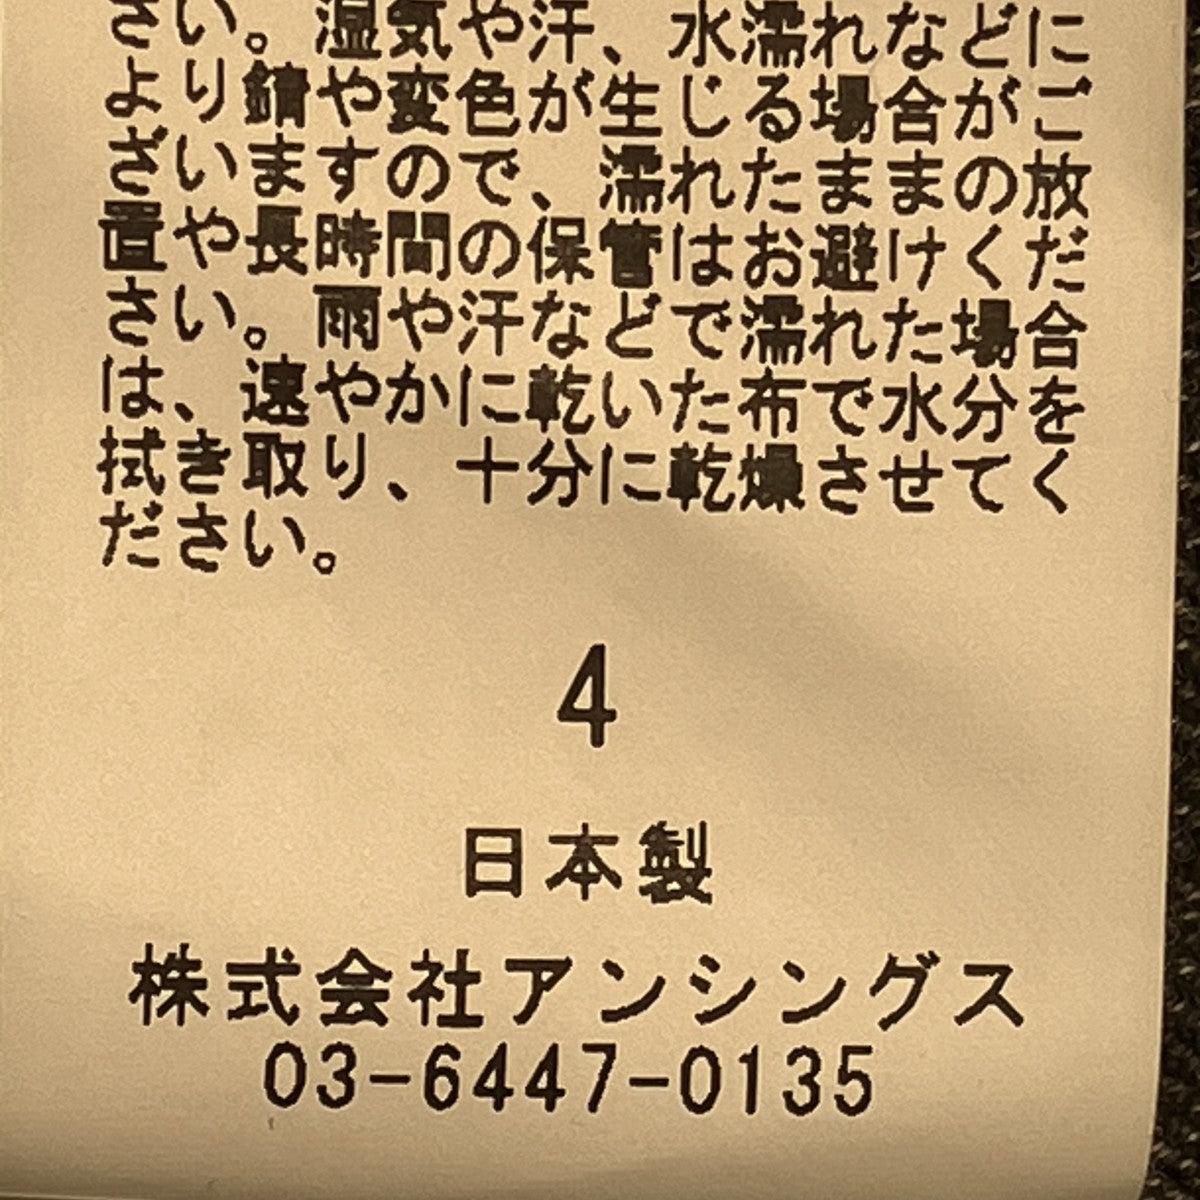 さい。湿気や汗、水濡れなどに
より錆や変色が生じる場合がご
ざいますので、濡れたままの放
置や長時間の保管はお避けくだ
さい。雨や汗などで濡れた場合
は、速やかに乾いた布で水分を
拭き取り、十分に乾燥させてく
ださい。
4
日本製
株式会社アンシングス
03-6447-0135